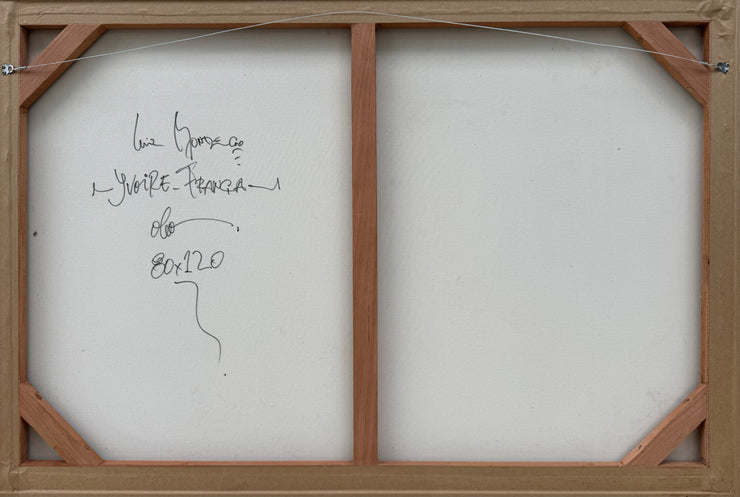 Luiz Gondecio
~YVOIRE-FRANÇA~
oleo
80x120